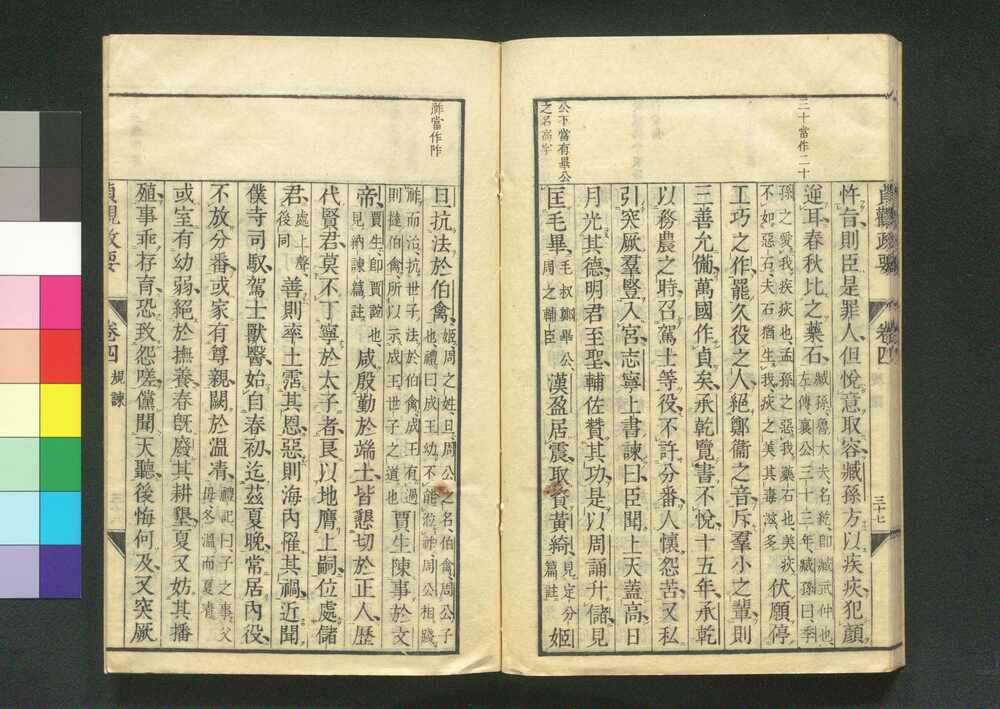 貞觀政要
卷四
三十七
三十當作二十
公下當有畢公
之名高字
忤旨則臣是罪人但悅意取容臧孫方以疾疢犯顏
逆耳春秋比之藥石臧孫魯大夫名紇即臧武仲也
左傳襄公三十三年臧孫曰季
孫之愛我疾疢也孟孫之惡我藥石也美疢
不如惡石夫石猶生我疢之美其毒滋多伏願停
工巧之作罷久役之人絕鄭衞之音斥羣小之輩則
三善允備萬國作貞矣承乾覽書不悅十五年承乾
以務農之時召駕士等役不許分番人懷怨苦又私
引突厥羣豎入宮志寧上書諫曰臣聞上天蓋高日
月光其德明君至聖輔佐贊其功是以周誦升儲見
匡毛畢毛叔鄭畢公
周之輔臣漢盈居震取資黃綺見定分
篇註姬
祚當作阼
旦抗法於伯禽姬周之姓旦周公之名伯禽周公子
也禮曰成王幼不能涖祚周公相踐
祚而治抗世子法於伯禽成王有過
則撻伯禽所以示成王世子之道也賈生陳事於文
帝賈生即賈誼也
見納諫篇註咸殷勤於端士皆懇切於正人歷
代賢君莫不丁寧於太子者良以地膺上嗣位處儲
君處上聲
後同善則率土霑其恩惡則海內罹其禍近聞
僕寺司馭駕士獸醫始自春初迄茲夏晚常居內役
不放分番或家有尊親闕於溫凊禮記曰子之事父
母冬溫而夏凊
或室有幼弱絕於撫養春既廢其耕墾夏又妨其播
殖事乖存育恐致怨嗟儻聞天聽後悔何及又突厥
貞觀政要
卷四
規諫